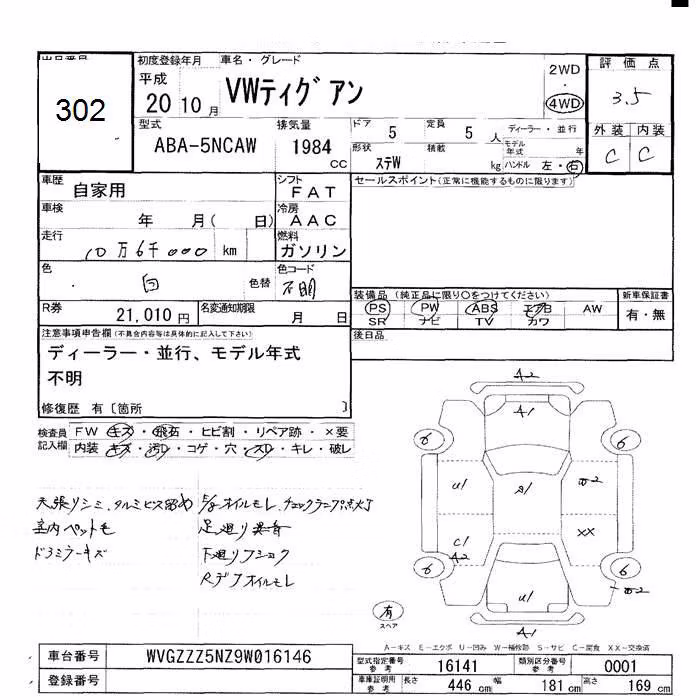 出品番号
302
初度登録年月
平成 20 10 月
車名・グレード
VWティグアン
2WD
・
4WD
評価点
3.5
外装 内装
C C
型式
ABA-5NCAW
排気量
1984 CC
ドア 5
定員 5 人
ディーラー・並行
モデル年式 年
形状 ステW
積載 kg
ハンドル 左・右
車歴
自家用
シフト
FAT
セールスポイント(正常に機能するものに限ります)
車検
年 月( 日)
冷房
AAC
走行
10万6千000 km
燃料
ガソリン
色
白
色替
色コード
不明
装備品 (純正品に限り○をつけてください)
新車保証書
PS PW ABS エアB AW
有・無
SR ナビ TV カワ
R券
21,010 円
名変通知期限
月 日
後日品
注意事項申告欄(不具合内容等は具体的に記入して下さい)
ディーラー・並行、モデル年式
不明
修復歴 有〔箇所 〕
検査員
記入欄
FW キズ・飛石・ヒビ割・リペア跡・×要
内装 キズ・汚レ・コゲ・穴・スレ・キレ・破レ
天張リシミ、タルミビス留め
室内ペット毛
ドラミラーキズ
E/gオイルモレ、チェックランプ点灯
足廻り異音
下廻りフショク
Rデフオイルモレ
A2
A1
6 6
U1 S1
C1
A2
XX
6 6
U1
A1
有
スペア
A-キズ E-エクボ U-凹み W-補修跡 S-サビ C-腐食 XX-交換済
車台番号
WVGZZZ5NZ9W016146
登録番号
型式指定番号
参考
16141
類別区分番号
参考
0001
車庫証明用
参考
長さ 446 cm
幅 181 cm
高さ 169 cm